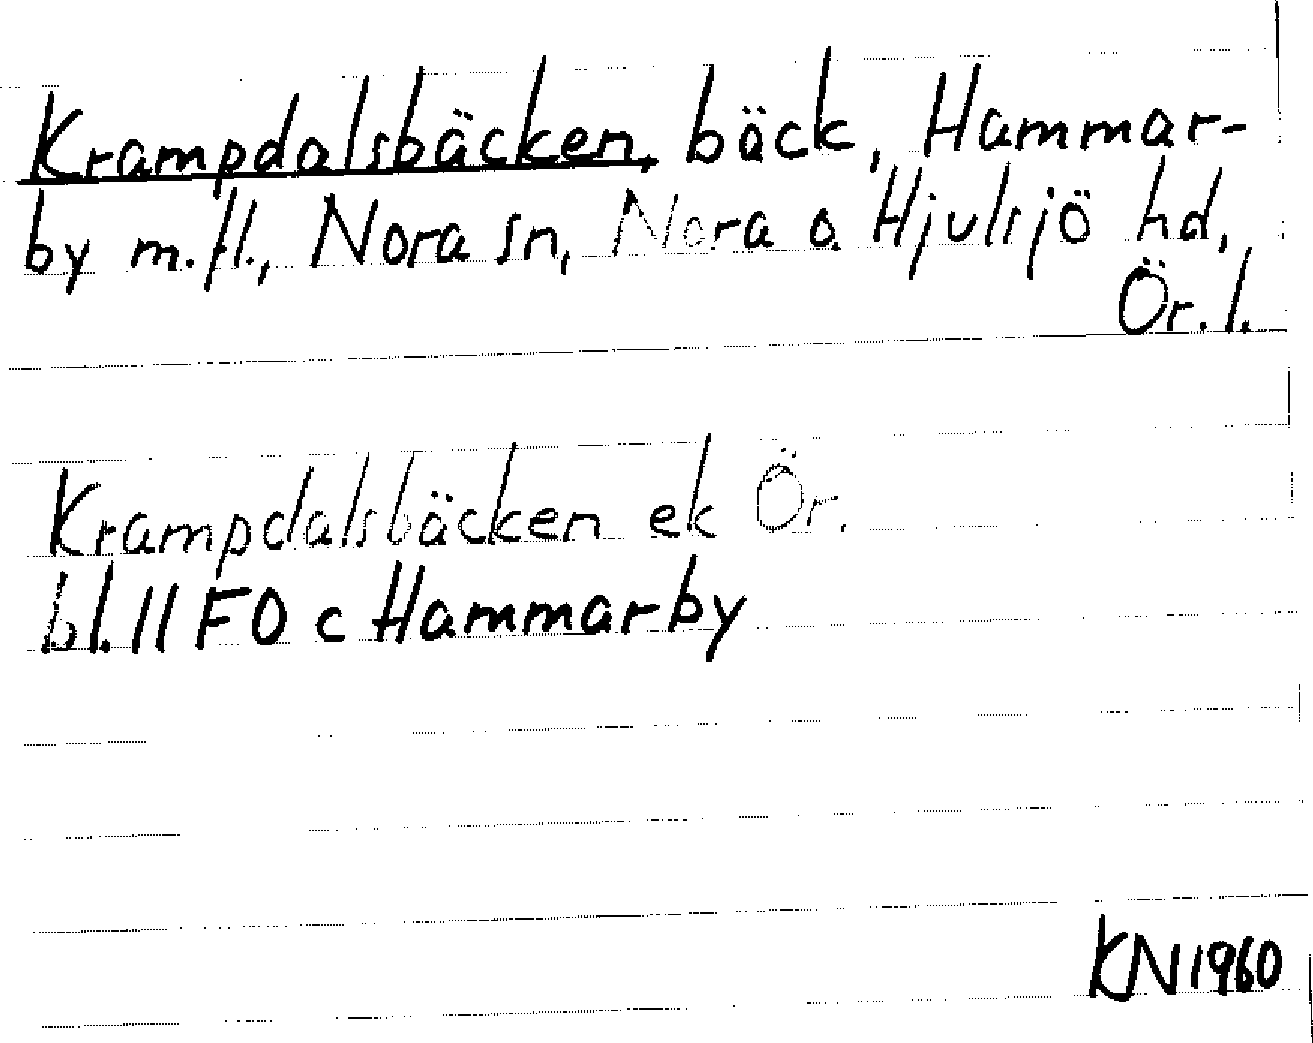 Krampdalsbäcken, bäck, Hammar-
by m.fl., Nora sn, Nora o. Hjulsjö hd,
Ör. l.
Krampdalsbäcken ek Ör.
bl. 11 F0 c Hammarby
KN 1960